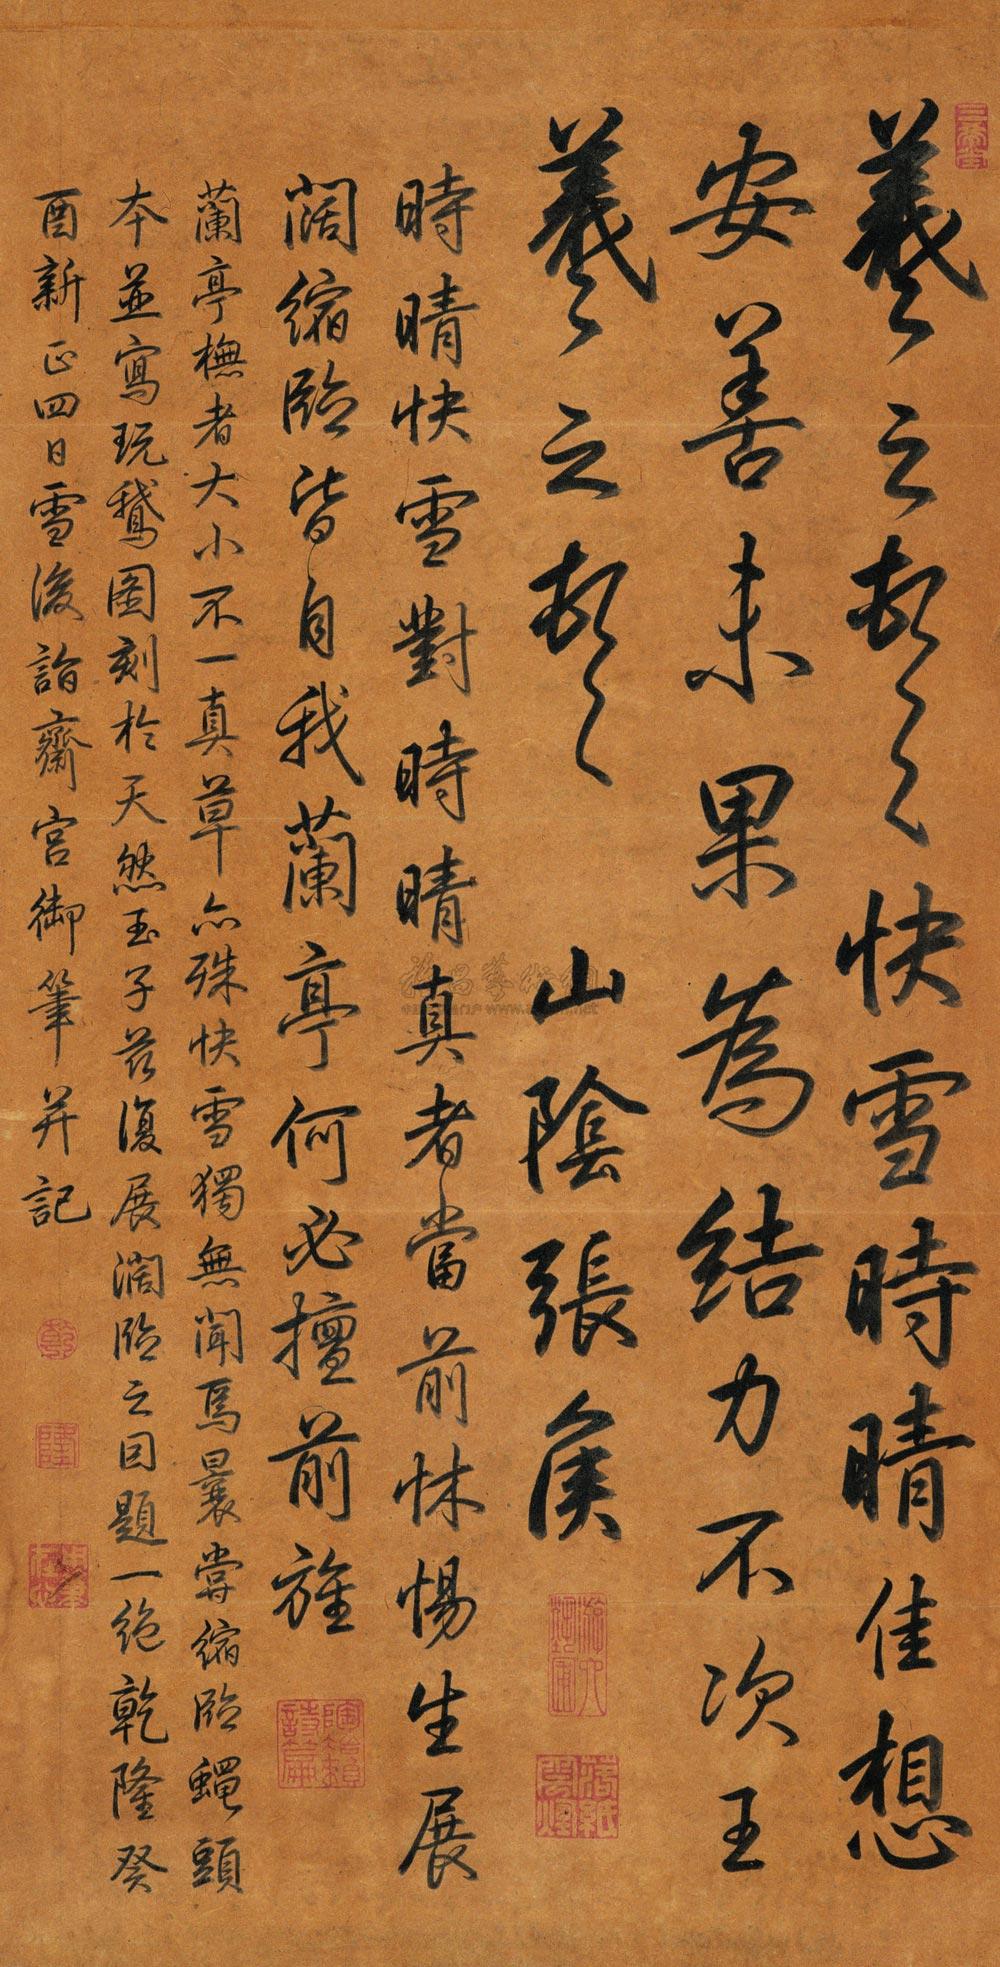 羲之頓首快雪時晴佳想
安善未果為結力不次王
羲之頓首 山陰張侯
時晴快雪對時晴真者當前怵惕生展
闊縮臨皆自我蘭亭何必擅前旌
蘭亭橅者大小不一真草亦殊快雪獨無聞焉曩嘗縮臨蠅頭
本並寫玩鵝圖刻於天然玉子茲復展濶臨之因題一絕乾隆癸
酉新正四日雪後詣齋宮御筆并記
乾
隆
陶冶賴詩篇